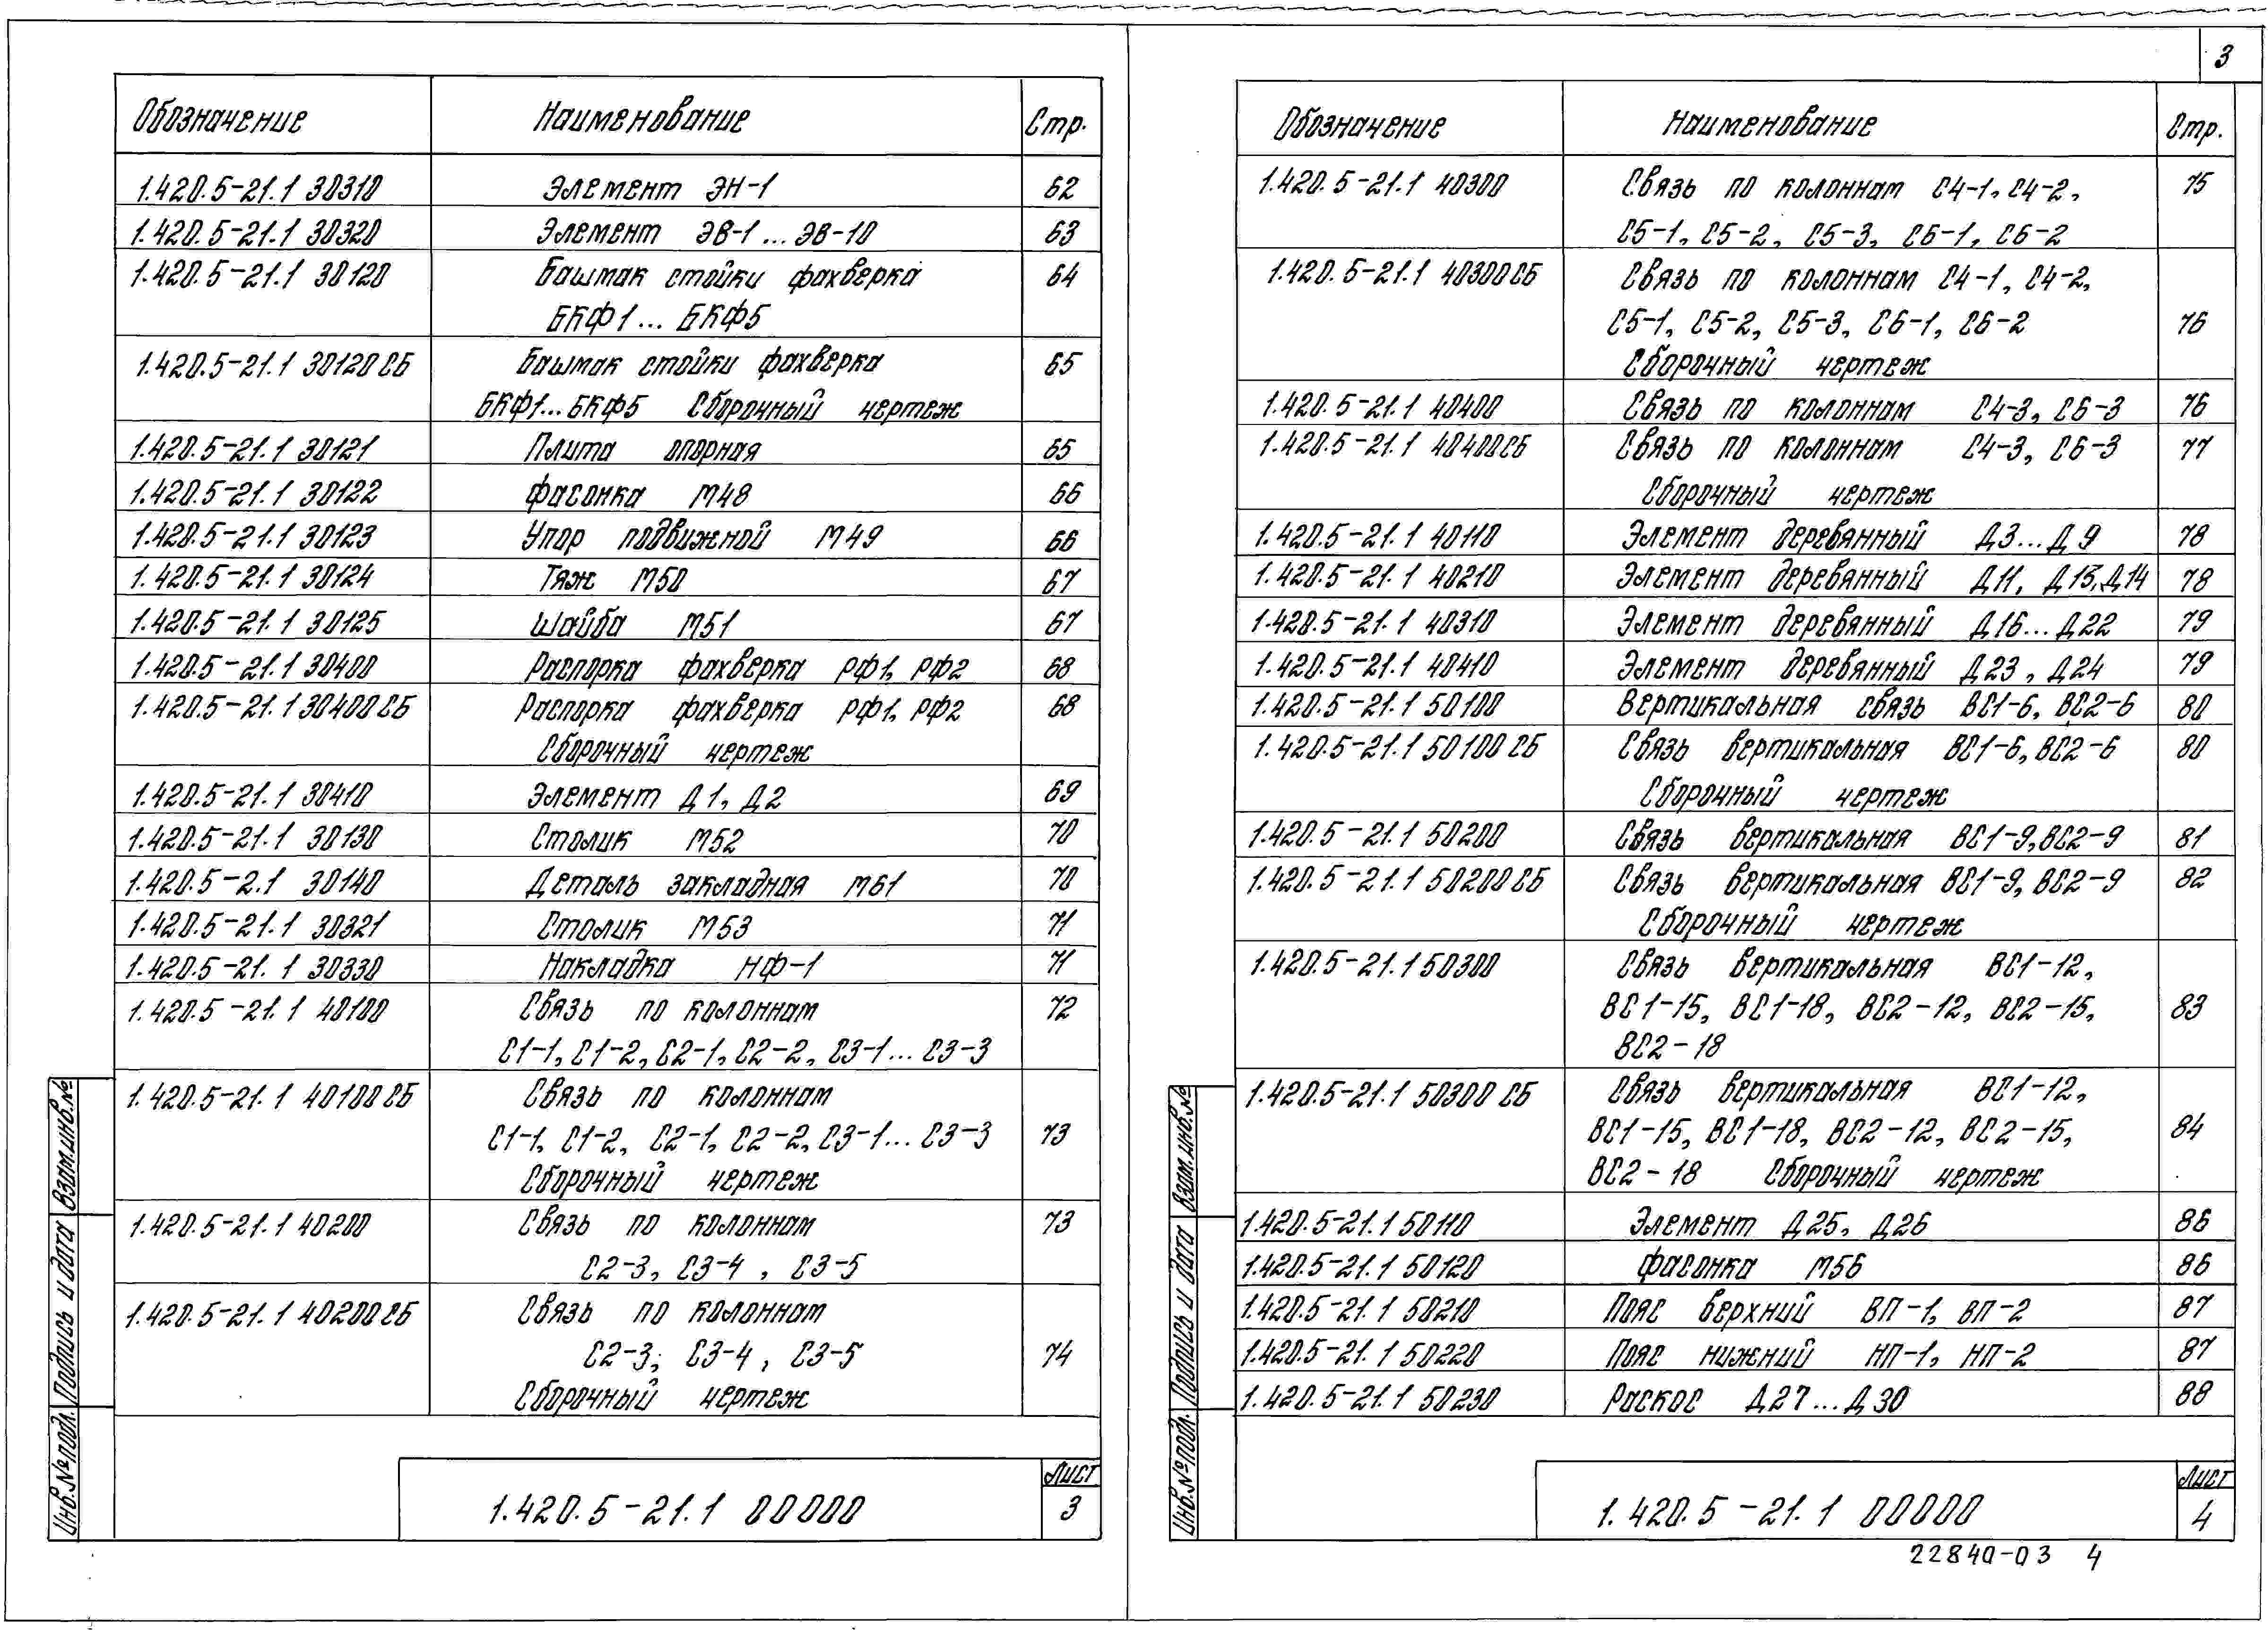 3
Обозначение Наименование Стр.
1.420.5-21.1 30310 Элемент ЭН-1 62
1.420.5-21.1 30320 Элемент ЭВ-1...ЭВ-10 63
1.420.5-21.1 30120 Башмак стойки фахверка 64
БКФ1...БКФ5
1.420.5-21.1 30120СБ Башмак стойки фахверка 65
БКФ1...БКФ5 Сборочный чертеж
1.420.5-21.1 30121 Плита опорная 65
1.420.5-21.1 30122 Фасонка М48 66
1.420.5-21.1 30123 Упор подвижной М49 66
1.420.5-21.1 30124 Тяж М50 67
1.420.5-21.1 30125 Шайба М51 67
1.420.5-21.1 30400 Распорка фахверка РФ1, РФ2 68
1.420.5-21.1 30400СБ Распорка фахверка РФ1, РФ2 68
Сборочный чертеж
1.420.5-21.1 30410 Элемент Д1, Д2 69
1.420.5-21.1 30130 Столик М52 70
1.420.5-2.1 30140 Деталь закладная М61 70
1.420.5-21.1 30321 Столик М53 71
1.420.5-21.1 30330 Накладка НФ-1 71
1.420.5-21.1 40100 Связь по колоннам 72
С1-1, С1-2, С2-1, С2-2, С3-1...С3-3
1.420.5-21.1 40100СБ Связь по колоннам
С1-1, С1-2, С2-1, С2-2, С3-1...С3-3 73
Сборочный чертеж
1.420.5-21.1 40200 Связь по колоннам 73
С2-3, С3-4, С3-5
1.420.5-21.1 40200СБ Связь по колоннам
С2-3; С3-4, С3-5 74
Сборочный чертеж
Инв.№подл. Подпись и дата Взам.инв.№
1.420.5-21.1 00000
Лист
3
Обозначение Наименование Стр.
1.420.5-21.1 40300 Связь по колоннам С4-1, С4-2, 75
С5-1, С5-2, С5-3, С6-1, С6-2
1.420.5-21.1 40300СБ Связь по колоннам С4-1, С4-2,
С5-1, С5-2, С5-3, С6-1, С6-2 76
Сборочный чертеж
1.420.5-21.1 40400 Связь по колоннам С4-3, С6-3 76
1.420.5-21.1 40400СБ Связь по колоннам С4-3, С6-3 77
Сборочный чертеж
1.420.5-21.1 40110 Элемент деревянный Д3...Д9 78
1.420.5-21.1 40210 Элемент деревянный Д11, Д13, Д14 78
1.420.5-21.1 40310 Элемент деревянный Д16...Д22 79
1.420.5-21.1 40410 Элемент деревянный Д23, Д24 79
1.420.5-21.1 50100 Вертикальная связь ВС1-6, ВС2-6 80
1.420.5-21.1 50100СБ Связь вертикальная ВС1-6, ВС2-6 80
Сборочный чертеж
1.420.5-21.1 50200 Связь вертикальная ВС1-9, ВС2-9 81
1.420.5-21.1 50200СБ Связь вертикальная ВС1-9, ВС2-9 82
Сборочный чертеж
1.420.5-21.1 50300 Связь вертикальная ВС1-12,
ВС1-15, ВС1-18, ВС2-12, ВС2-15, 83
ВС2-18
1.420.5-21.1 50300СБ Связь вертикальная ВС1-12,
ВС1-15, ВС1-18, ВС2-12, ВС2-15, 84
ВС2-18 Сборочный чертеж
1.420.5-21.1 50110 Элемент Д25, Д26 86
1.420.5-21.1 50120 Фасонка М56 86
1.420.5-21.1 50210 Пояс верхний ВП-1, ВП-2 87
1.420.5-21.1 50220 Пояс нижний НП-1, НП-2 87
1.420.5-21.1 50230 Раскос Д27...Д30 88
Инв.№подл. Подпись и дата Взам.инв.№
1.420.5-21.1 00000
Лист
4
22840-03 4